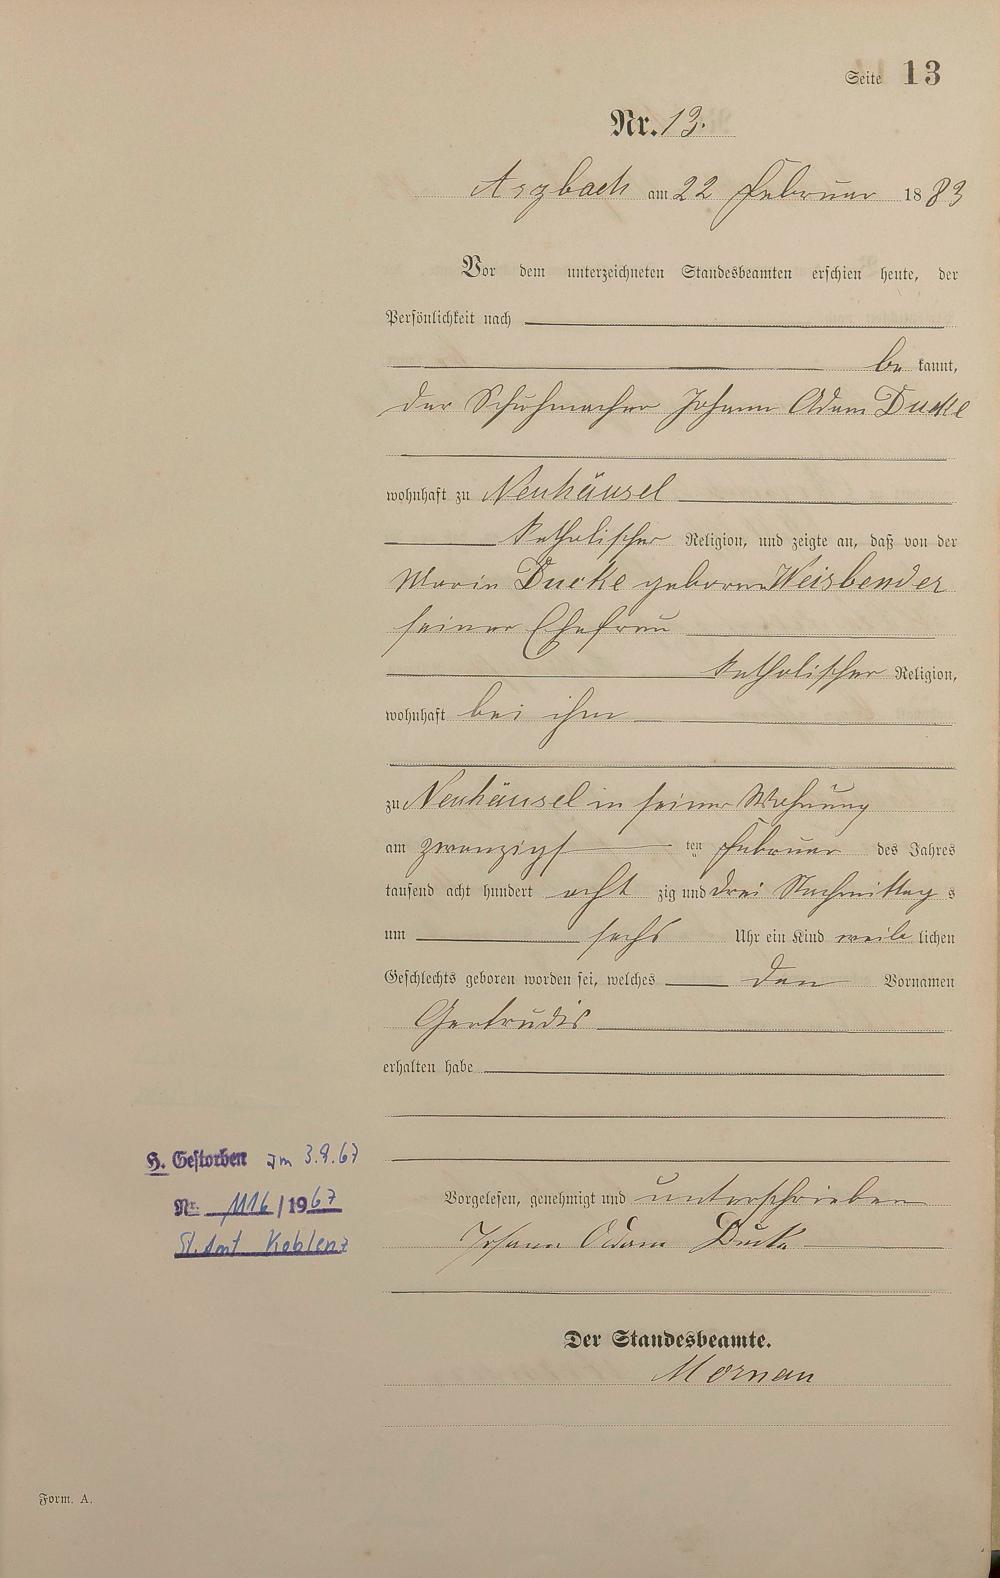 Seite 13
Nr. 13.
Arzbach am 22 Februar 1883
Vor dem unterzeichneten Standesbeamten erschien heute, der
Persönlichkeit nach
be kannt,
der Schuhmacher Johann Adam Ducke
wohnhaft zu Neuhäusel
katholischer Religion, und zeigte an, daß von der
Maria Ducke geborene Weisbender
seiner Ehefrau
katholischer Religion,
wohnhaft bei ihm
zu Neuhäusel in seiner Wohnung
am zwanzigsten Februar des Jahres
tausend acht hundert acht zig und drei Nachmittag s
um sechs Uhr ein Kind weib lichen
Geschlechts geboren worden sei, welches den Vornamen
Gertrudis
erhalten habe
H. Gestorben am 3.9.67
Nr. 1116/1967
St. Amt Koblenz
Vorgelesen, genehmigt und unterschrieben
Johann Adam Ducke
Der Standesbeamte.
Form. A.